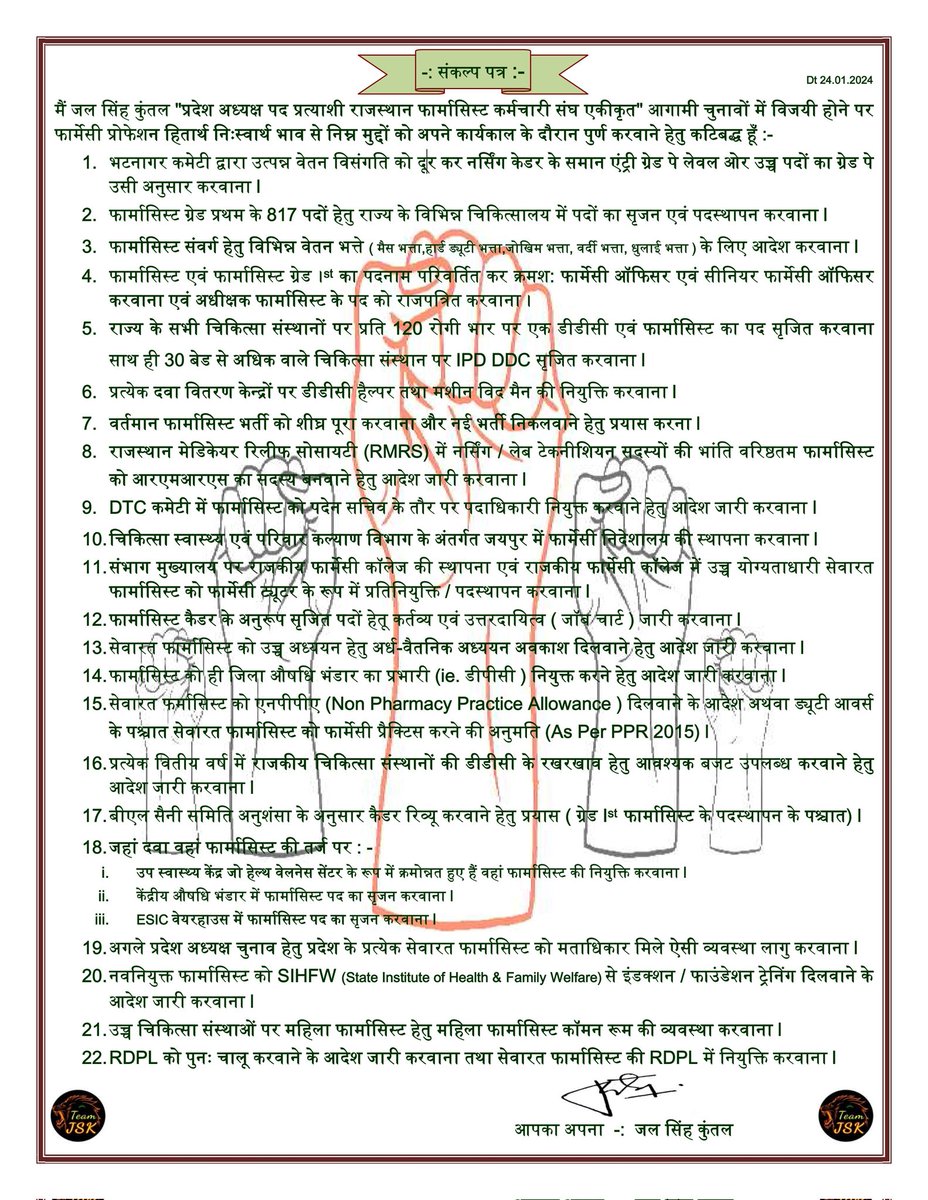 -: संकल्प पत्र :-
Dt 24.01.2024
मैं जल सिंह कुंतल "प्रदेश अध्यक्ष पद प्रत्याशी राजस्थान फार्मासिस्ट कर्मचारी संघ एकीकृत" आगामी चुनावों में विजयी होने पर
फार्मेसी प्रोफेशन हितार्थ निःस्वार्थ भाव से निम्न मुद्दों को अपने कार्यकाल के दौरान पुर्ण करवाने हेतु कटिबद्ध हूँ :-
1. भटनागर कमेटी द्वारा उत्पन्न वेतन विसंगति को दूर कर नर्सिंग केडर के समान एंट्री ग्रेड पे लेवल ओर उच्च पदों का ग्रेड पे
उसी अनुसार करवाना l
2. फार्मासिस्ट ग्रेड प्रथम के 817 पदों हेतु राज्य के विभिन्न चिकित्सालय में पदों का सृजन एवं पदस्थापन करवाना l
3. फार्मासिस्ट संवर्ग हेतु विभिन्न वेतन भत्ते ( मैस भत्ता,हार्ड ड्यूटी भत्ता,जोखिम भत्ता, वर्दी भत्ता, धुलाई भत्ता ) के लिए आदेश करवाना l
4. फार्मासिस्ट एवं फार्मासिस्ट ग्रेड Ist का पदनाम परिवर्तित कर क्रमश: फार्मेसी ऑफिसर एवं सीनियर फार्मेसी ऑफिसर
करवाना एवं अधीक्षक फार्मासिस्ट के पद को राजपत्रित करवाना ।
5. राज्य के सभी चिकित्सा संस्थानों पर प्रति 120 रोगी भार पर एक डीडीसी एवं फार्मासिस्ट का पद सृजित करवाना
साथ ही 30 बेड से अधिक वाले चिकित्सा संस्थान पर IPD DDC सृजित करवाना l
6. प्रत्येक दवा वितरण केन्द्रों पर डीडीसी हैल्पर तथा मशीन विद मैन की नियुक्ति करवाना l
7. वर्तमान फार्मासिस्ट भर्ती को शीघ्र पूरा करवाना और नई भर्ती निकलवाने हेतु प्रयास करना l
8. राजस्थान मेडिकेयर रिलीफ सोसायटी (RMRS) में नर्सिंग / लेब टेकनीशियन सदस्यों की भांति वरिष्ठतम फार्मासिस्ट
को आरएमआरएस का सदस्य बनवाने हेतु आदेश जारी करवाना l
9. DTC कमेटी में फार्मासिस्ट को पदेन सचिव के तौर पर पदाधिकारी नियुक्त करवाने हेतु आदेश जारी करवाना l
10. चिकित्सा स्वास्थ्य एवं परिवार कल्याण विभाग के अंतर्गत जयपुर में फार्मेसी निदेशालय की स्थापना करवाना l
11. संभाग मुख्यालय पर राजकीय फार्मेसी कॉलेज की स्थापना एवं राजकीय फार्मेसी कॉलेज में उच्च योग्यताधारी सेवारत
फार्मासिस्ट को फार्मेसी ट्यूटर के रूप में प्रतिनियुक्ति / पदस्थापन करवाना l
12. फार्मासिस्ट कैडर के अनुरूप सृजित पदों हेतू कर्तव्य एवं उत्तरदायित्व ( जॉब चार्ट ) जारी करवाना l
13. सेवारत फार्मासिस्ट को उच्च अध्ययन हेतु अर्ध-वैतनिक अध्ययन अवकाश दिलवाने हेतु आदेश जारी करवाना l
14. फार्मासिस्ट को ही जिला औषधि भंडार का प्रभारी (ie. डीपीसी ) नियुक्त करने हेतु आदेश जारी करवाना l
15. सेवारत फर्मासिस्ट को एनपीपीए (Non Pharmacy Practice Allowance ) दिलवाने के आदेश अथवा ड्यूटी आवर्स
के पश्चात सेवारत फार्मासिस्ट को फार्मेसी प्रैक्टिस करने की अनुमति (As Per PPR 2015) l
16. प्रत्येक वितीय वर्ष में राजकीय चिकित्सा संस्थानों की डीडीसी के रखरखाव हेतु आवश्यक बजट उपलब्ध करवाने हेतु
आदेश जारी करवाना l
17. बीएल सैनी समिति अनुशंसा के अनुसार कैडर रिव्यू करवाने हेतु प्रयास ( ग्रेड Ist फार्मासिस्ट के पदस्थापन के पश्चात) l
18. जहां दवा वहां फार्मासिस्ट की तर्ज पर : -
i. उप स्वास्थ्य केंद्र जो हेल्थ वेलनेस सेंटर के रूप में क्रमोन्नत हुए हैं वहां फार्मासिस्ट की नियुक्ति करवाना l
ii. केंद्रीय औषधि भंडार में फार्मासिस्ट पद का सृजन करवाना l
iii. ESIC वेयरहाउस में फार्मासिस्ट पद का सृजन करवाना l
19. अगले प्रदेश अध्यक्ष चुनाव हेतु प्रदेश के प्रत्येक सेवारत फार्मासिस्ट को मताधिकार मिले ऐसी व्यवस्था लागु करवाना l
20. नवनियुक्त फार्मासिस्ट को SIHFW (State Institute of Health & Family Welfare) से इंडक्शन / फाउंडेशन ट्रेनिंग दिलवाने के
आदेश जारी करवाना l
21. उच्च चिकित्सा संस्थाओं पर महिला फार्मासिस्ट हेतु महिला फार्मासिस्ट कॉमन रूम की व्यवस्था करवाना l
22. RDPL को पुनः चालू करवाने के आदेश जारी करवाना तथा सेवारत फार्मासिस्ट की RDPL में नियुक्ति करवाना l
आपका अपना -: जल सिंह कुंतल
Team
JSK
Team
JSK